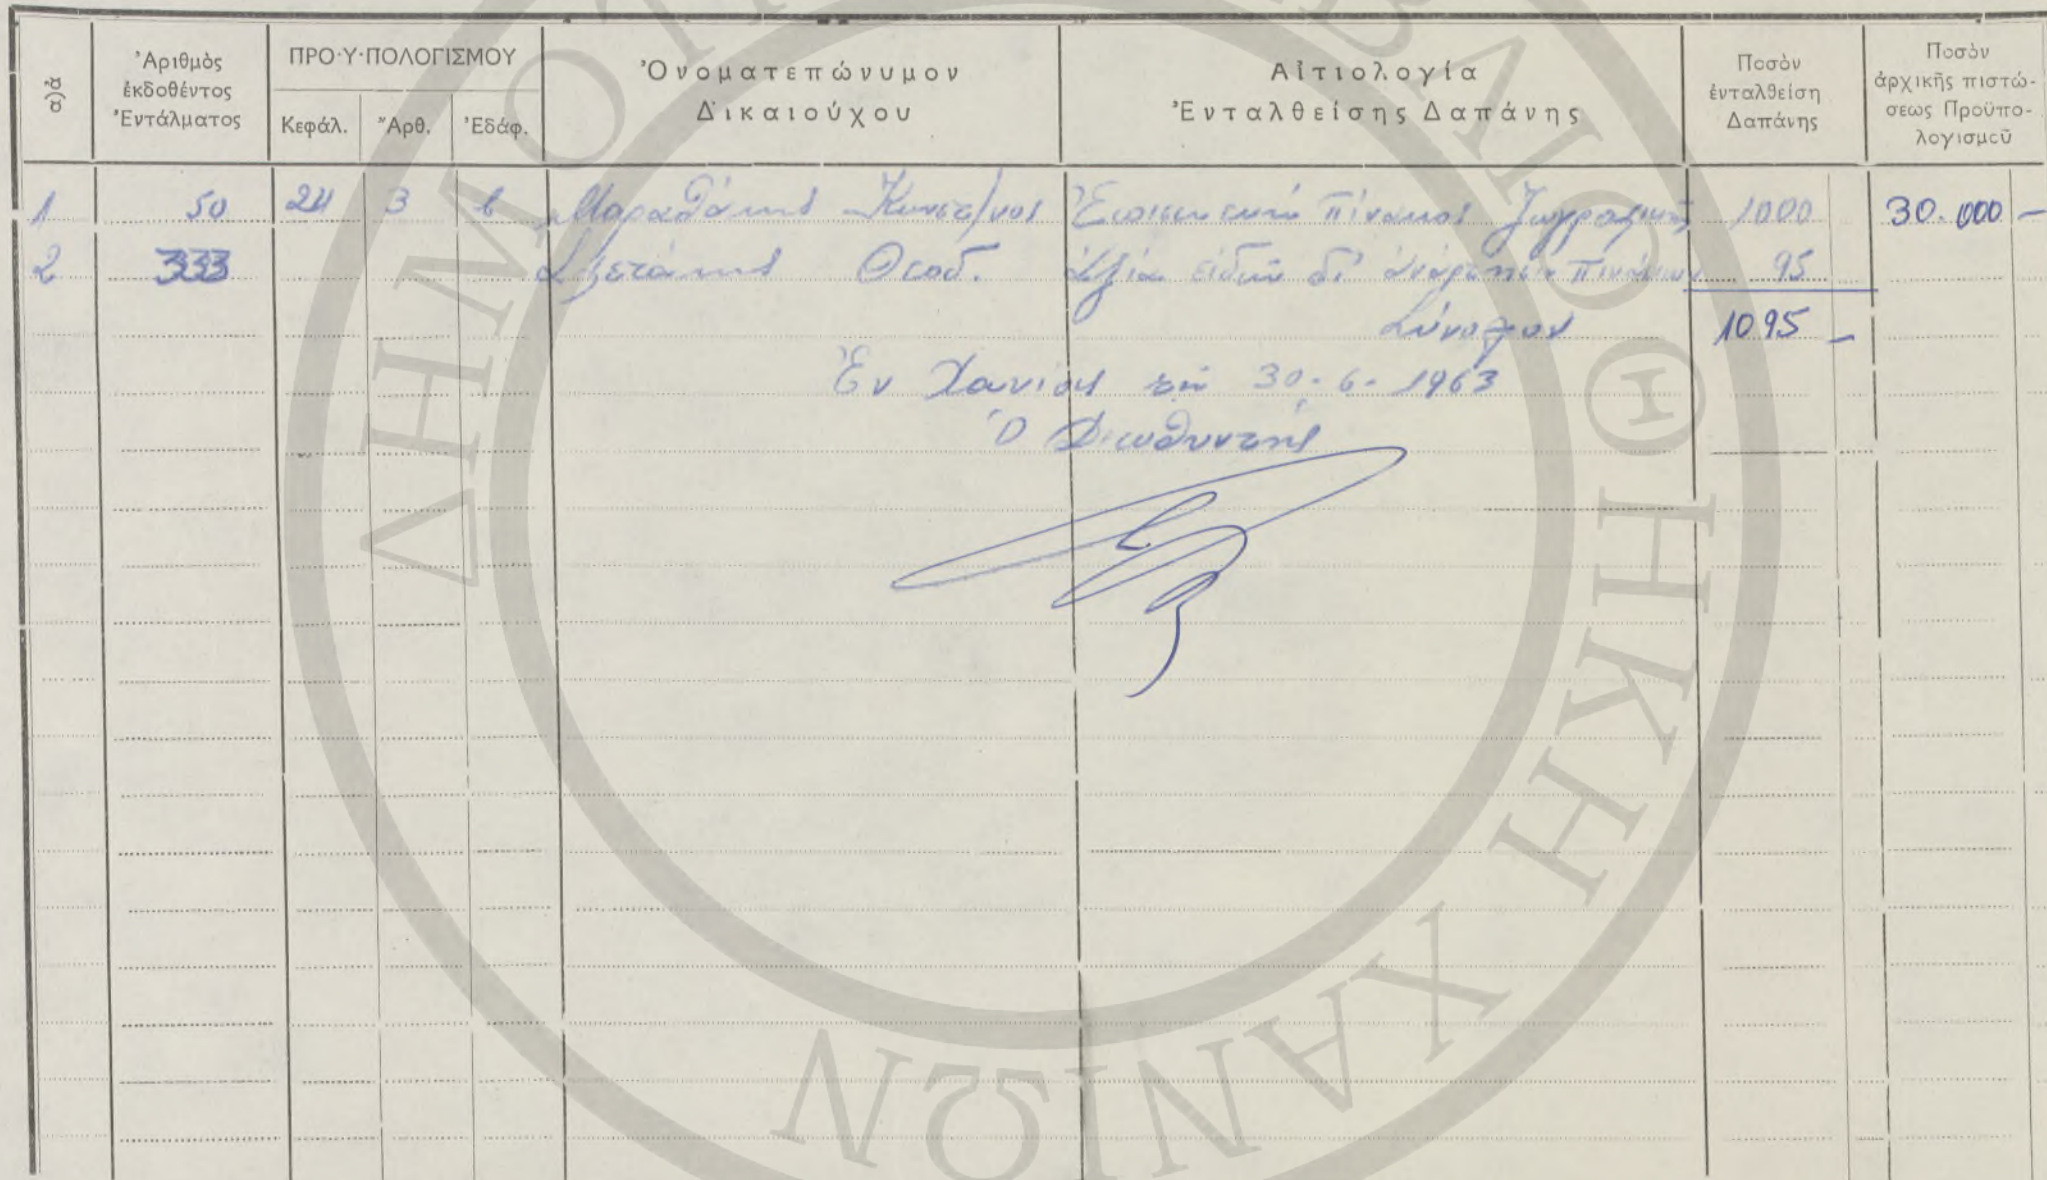 α)α
Ἀριθμὸς ἐκδοθέντος Ἐντάλματος
ΠΡΟ·Υ·ΠΟΛΟΓΙΣΜΟΥ
Κεφάλ. Ἄρθ. Ἐδάφ.
Ὀνοματεπώνυμον Δικαιούχου
Αἰτιολογία Ἐνταλθείσης Δαπάνης
Ποσὸν ἐνταλθείση Δαπάνης
Ποσὸν ἀρχικῆς πιστώ-
σεως Προϋπο-
λογισμοῦ
1 50 24 3 Μαραθάκης Κωνστ/νος πίνακος ζωγραφικῆς 1000 30.000 –
2 333 Θεοδ. Ἀξία εἰδῶν δι' ἀνάρτησιν πινάκων 95
Σύνολον 1095 –
Ἐν Χανίοις τῇ 30-6-1963
Ὁ Διευθυντής
ΔΗΜΟΤ ΒΛΙΟΘΗΚΗ ΧΑΝΙΩΝ